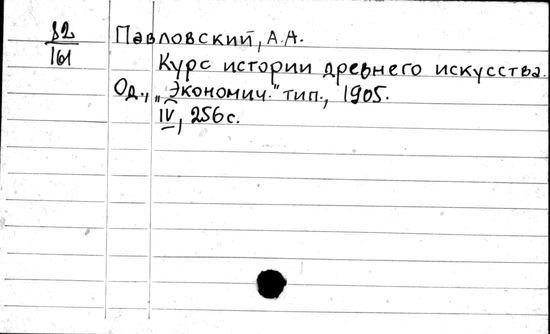 82
161
Павловский, А.А.
Курс истории древнего искусства.
Од., „Экономич." тип., 1905.
IV, 256 с.